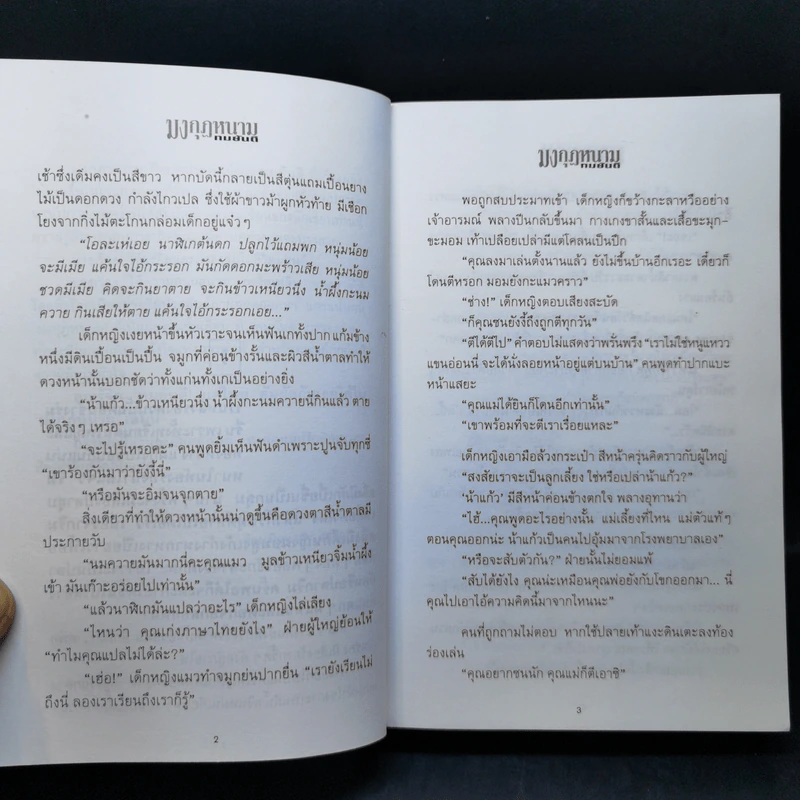 มงกุฎหนาม
ทมยันตี
เช้าซึ่งเดิมคงเป็นสีขาว หากบัดนี้กลายเป็นสีตุ่นแถมเปื้อนยาง
ไม้เป็นดอกดวง กำลังไกวเปล ซึ่งใช้ผ้าขาวม้าผูกหัวท้าย มีเชือก
โยงจากกิ่งไม้ตะโกนกล่อมเด็กอยู่แจ๋วๆ
“โอละเห่เอย นาฬิเกต้นดก ปลูกไว้แถมพก หนุ่มน้อย
จะมีเมีย แค้นใจไอ้กระรอก มันกัดดอกมะพร้าวเสีย หนุ่มน้อย
ชวดมีเมีย คิดจะกินยาตาย จะกินข้าวเหนียวนึ่ง น้ำผึ้งกะนม
ควาย กินเสียให้ตาย แค้นใจไอ้กระรอกเอย...”
เด็กหญิงเงยหน้าขึ้นหัวเราะจนเห็นฟันเกทั้งปาก แก้มข้าง
หนึ่งมีดินเปื้อนเป็นปื้น จมูกที่ค่อนข้างรั้นและผิวสีน้ำตาลทำให้
ดวงหน้านั้นบอกชัดว่าทั้งแก่นทั้งเกเป็นอย่างยิ่ง
“น้าแก้ว...ข้าวเหนียวนึ่ง น้ำผึ้งกะนมควายนี่กินแล้ว ตาย
ได้จริงๆ เหรอ”
“จะไปรู้เหรอคะ” คนพูดยิ้มเห็นฟันดำเพราะปูนจับทุกซี่
“เขาร้องกันมาว่ายังงี้นี่”
“หรือมันจะอิ่มจนจุกตาย”
สิ่งเดียวที่ทำให้ดวงหน้านั้นน่าดูขึ้นคือดวงตาสีน้ำตาลมี
ประกายวับ
“นมควายมันมากนี่คะคุณแมว มูลข้าวเหนียวจิ้มน้ำผึ้ง
เข้า มันเก๊าะอร่อยไปเท่านั้น”
“แล้วนาฬิเกมันแปลว่าอะไร” เด็กหญิงไล่เลียง
“ไหนว่า คุณเก่งภาษาไทยยังไง” ฝ่ายผู้ใหญ่ย้อนให้
“ทำไมคุณแปลไม่ได้ล่ะ?”
“เฮ่อ!” เด็กหญิงแมวทำจมูกย่นปากยื่น “เรายังเรียนไม่
ถึงนี่ ลองเราเรียนถึงเราก็รู้”
2
มงกุฎหนาม
ทมยันตี
พอถูกสบประมาทเข้า เด็กหญิงก็ขว้างกะลาหวืออย่าง
เจ้าอารมณ์ พลางปีนกลับขึ้นมา กางเกงขาสั้นและเสื้อขะมุก-
ขะมอม เท้าเปลือยเปล่ามีแต่โคลนเป็นปึก
“คุณลงมาเล่นตั้งนานแล้ว ยังไม่ขึ้นบ้านอีกเรอะ เดี๋ยวก็
โดนตีหรอก มอมยังกะแมวคราว”
“ช่าง!” เด็กหญิงตอบเสียงสะบัด
“ก็คุณซนยังงี้ถึงถูกตีทุกวัน”
“ตีได้ตีไป” คำตอบไม่แสดงว่าพรั่นพรึง “เราไม่ใช่หนูแหวว
แขนอ่อนนี่ จะได้นั่งลอยหน้าอยู่แต่บนบ้าน” คนพูดทำปากแบะ
หน้าแสยะ
“คุณแม่ได้ยินก็โดนอีกเท่านั้น”
“เขาพร้อมที่จะตีเราเรื่อยแหละ”
เด็กหญิงเอามือล้วงกระเป๋า สีหน้าครุ่นคิดราวกับผู้ใหญ่
“สงสัยเราจะเป็นลูกเลี้ยง ใช่หรือเปล่าน้าแก้ว?”
‘น้าแก้ว’ มีสีหน้าค่อนข้างตกใจ พลางอุทานว่า
“ไฮ้...คุณพูดอะไรอย่างนั้น แม่เลี้ยงที่ไหน แม่ตัวแท้ๆ
ตอนคุณออกน่ะ น้าแก้วเป็นคนไปอุ้มมาจากโรงพยาบาลเอง”
“หรือจะสับตัวกัน?” ฝ่ายนั้นไม่ยอมแพ้
“สับได้ยังไง คุณน่ะเหมือนคุณพ่อยังกับโขกออกมา... นี่
คุณไปเอาไอ้ความคิดนี้มาจากไหนนะ”
คนที่ถูกถามไม่ตอบ หากใช้ปลายเท้าแงะดินเตะลงท้อง
ร่องเล่น
“คุณอยากซนนัก คุณแม่ก็ตีเอาซิ”
3